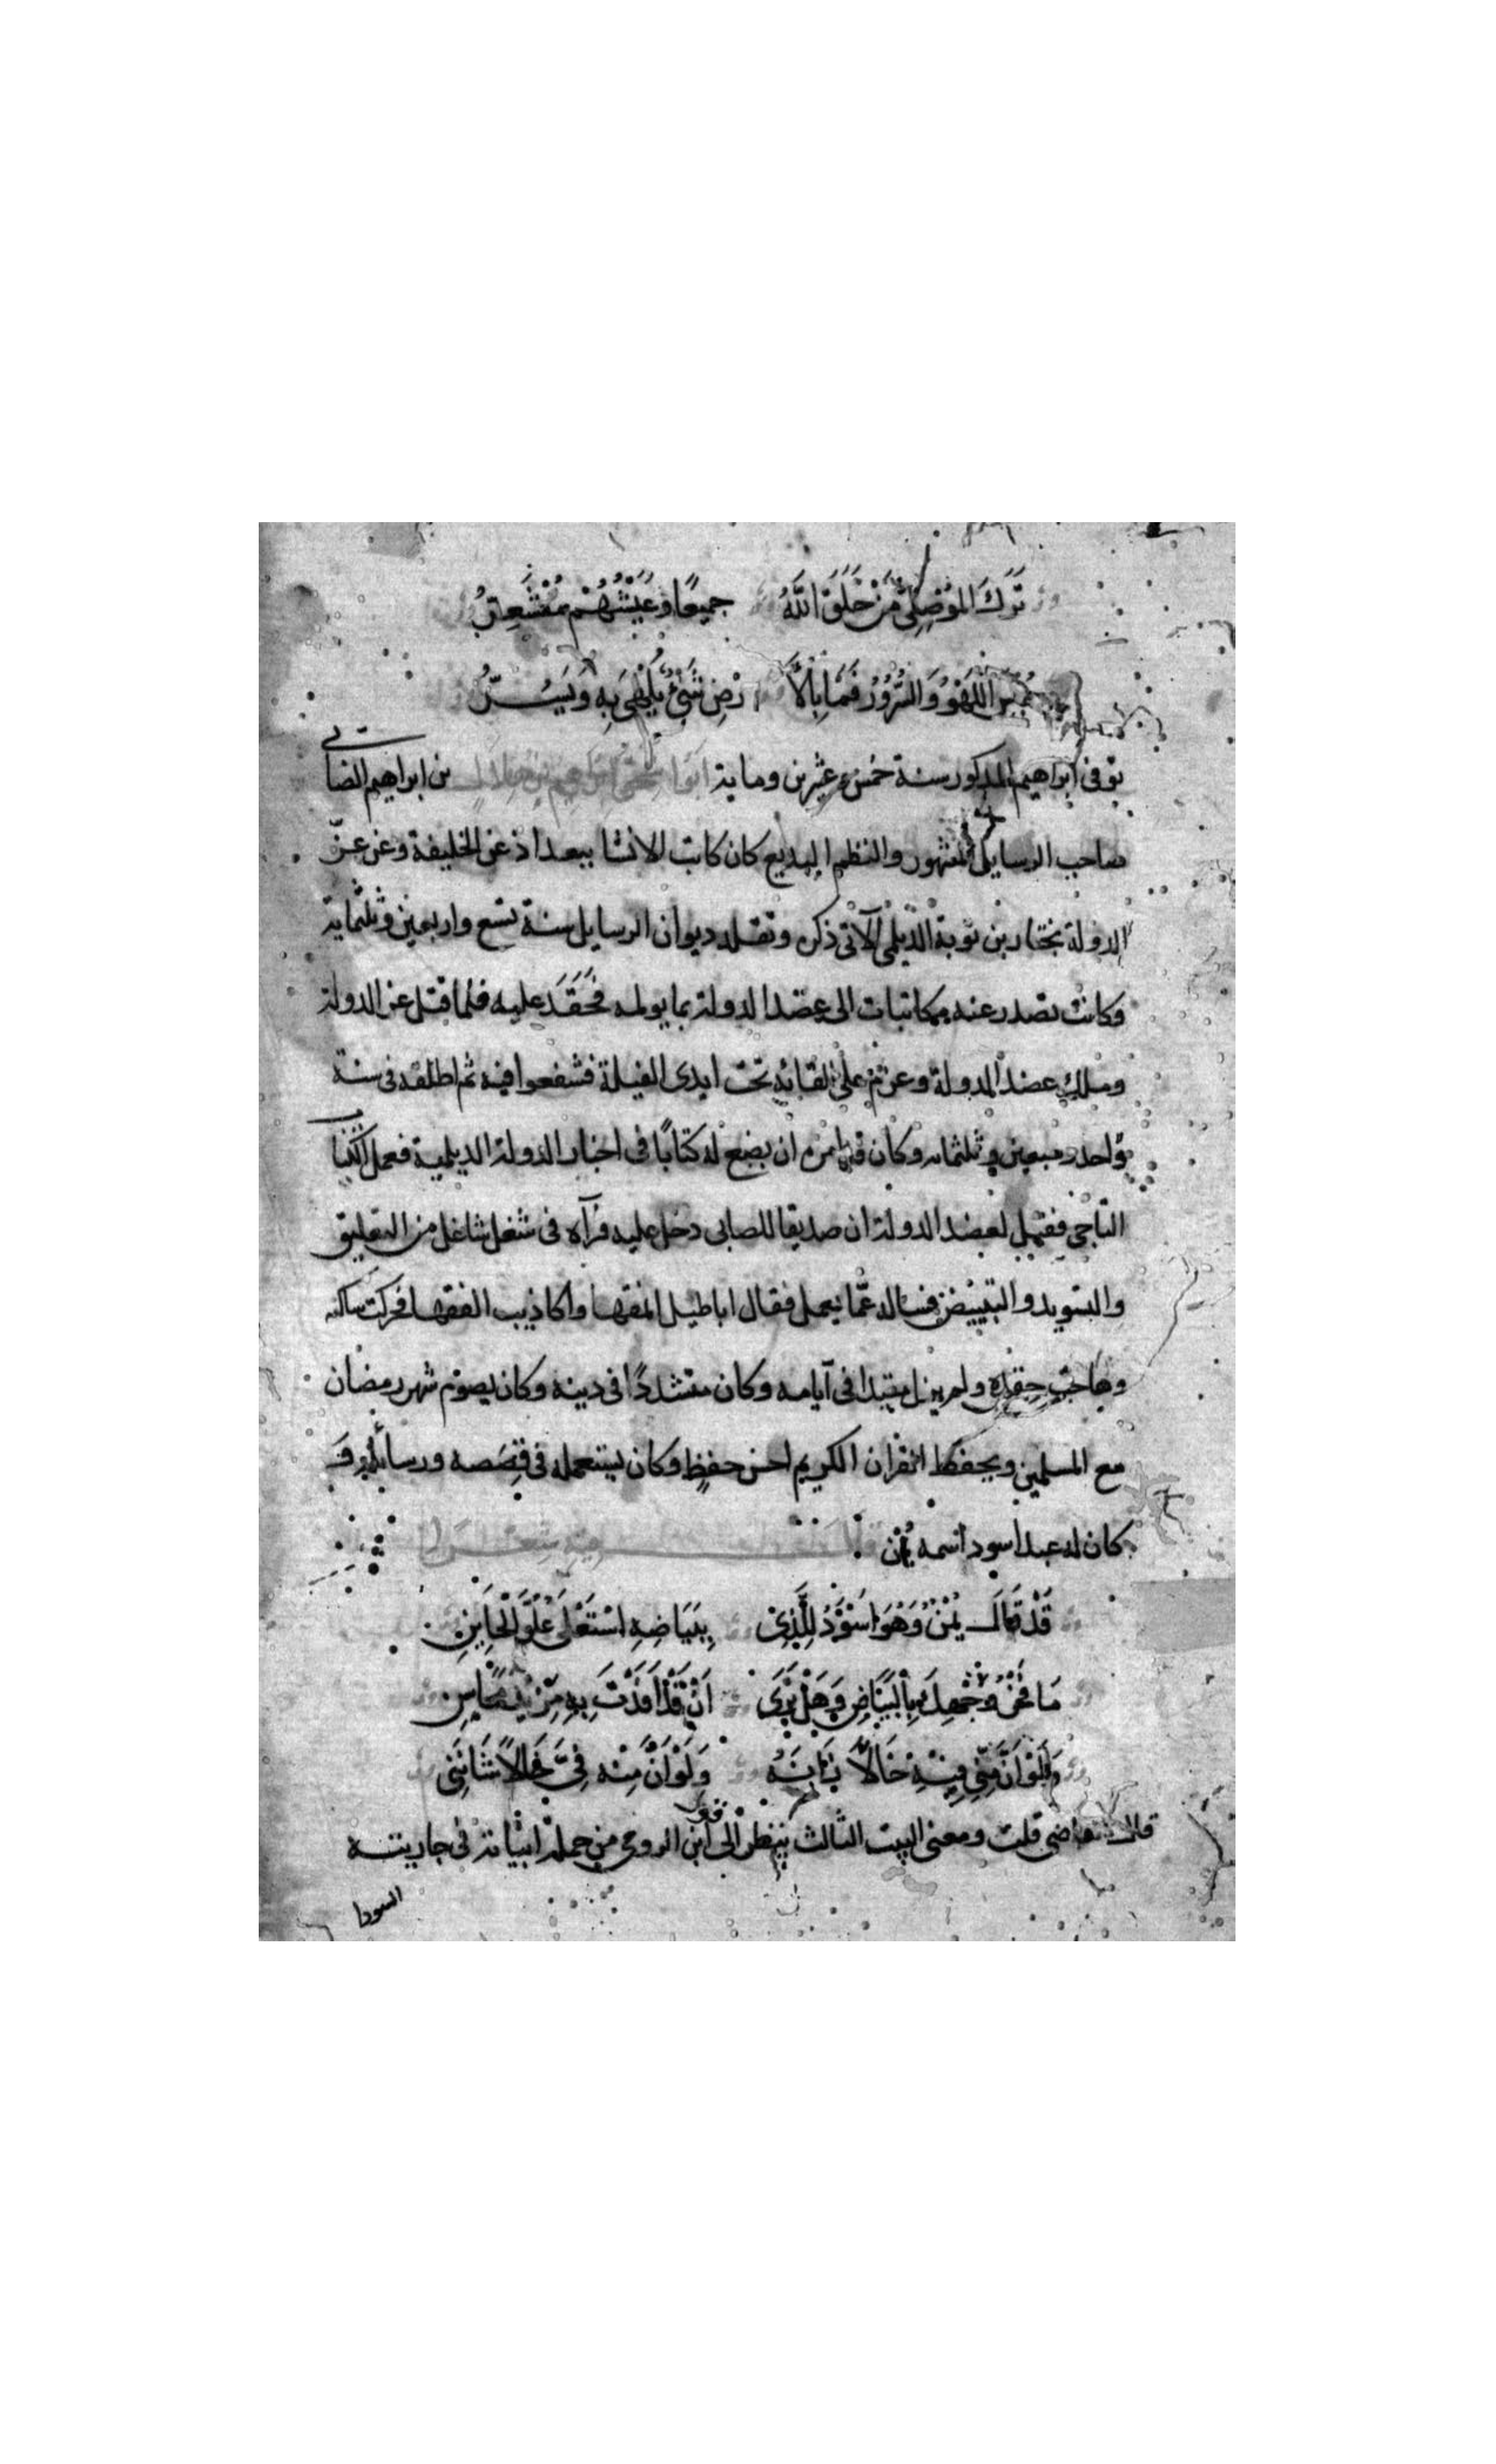 تَرَكَ المَوْصِلِيُّ مَنْ خَلَقَ اللَّهُ جميعًا وعَيْشُهُمْ مُقْشَعِرُّ
اللَّهْوُ وَالسُّرُوُرُ فَمَا بِالْأَ رْضِ شَيْءٌ يُلْهَى بِهِ وَيَسُرُّ
توفى ابراهيم المذكور سنة خمس وعشرين وماية ابوا سحق ابراهيم بن هلال بن ابراهيم الصابي
صاحب الرسايل المشهور والنظم البديع كان كاتب الانشا ببغداذ عن الخليفة وعن عزّ
الدولة بختار بن بويه الديلمى الآتى ذكره وتقلد ديوان الرسايل سنة تسع واربعين وثلثماية
وكانت تصدر عنه مكاتبات الى عضد الدولة بما يولمه فَحَقَدَ عليه فلما قتل عز الدولة
وملك عضد الدولة وعزم على القايه تحت ايدى الفيلة فشفعوا فيه ثم اطلقه فى سنة
واحد وسبعين وثلثمايه وكان قد امره ان يضع له كتابًا فى اخبار الدولة الديلمية فعمل الكتاب
التاجى فقيل لعضد الدولة ان صديقا للصابى دخل عليه فرآه فى شغل شاغل من التعليق
والتسويد والتبييض فساله عمّا يعمل فقال اباطيل انمقها واكاذيب الفقها فحركت ساكنه
وهاجت حقده ولم يزل مبعدا فى آيامه وكان متشددًا فى دينه وكان يصوم شهر رمضان
مع المسلمين ويحفظ القران الكريم احسن حفظٍ وكان يستعمله فى قِصَصه ورسائله و
كان له عبد اسود اسمه يُمْن
قَدْ قَالَ يُمْنٌ وَهُوَ اسْوَدُ لِلَّذِى بِبَيَاضِهِ اسْتَعْلَى عُلُوَّ الْخَايِنِ
مَا فَخْرُ وَجْهِكَ بِالْبَيَاضِ وَهَلْ تَرَى اَنْ قَدْ اَفَدْتَ بِهِ مَزِيدَ مَحَاسِنِ
وَلَوْ اَنَّ مِنِّى فِيْهِ خَالاً زَانَهُ وَلَوْ اَنَّ مِنْه فِىَّ خَالاً شَانَنِى
قال القاضى قلت ومعنى البيت الثالث ينظر الى قول ابن الرومى من جملة ابياته فى جاريته
السودا